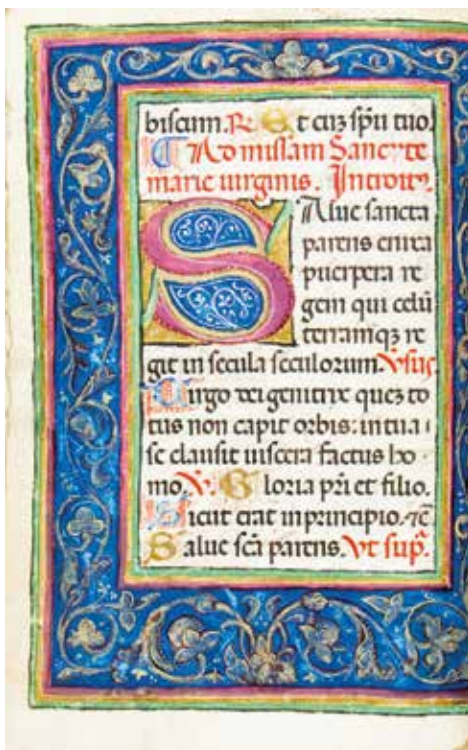 biscum. R. Et cuʒ sp̃u tuo.
Ad missam Sancte
marie uirginis. Introitꝰ.
Salue sancta
parens enixa
puerpera re
gem qui celũ
terramqʒ re
git in secula seculorum. Vsus.
Uirgo dei genitrix queʒ to
tus non capit orbis: in tua
se clausit uiscera factus ho
mo. V. Gloria pr̃i et filio.
Sicut erat in principio. ⁊c̃
Salue sc̃a parens. Vt sup̃.